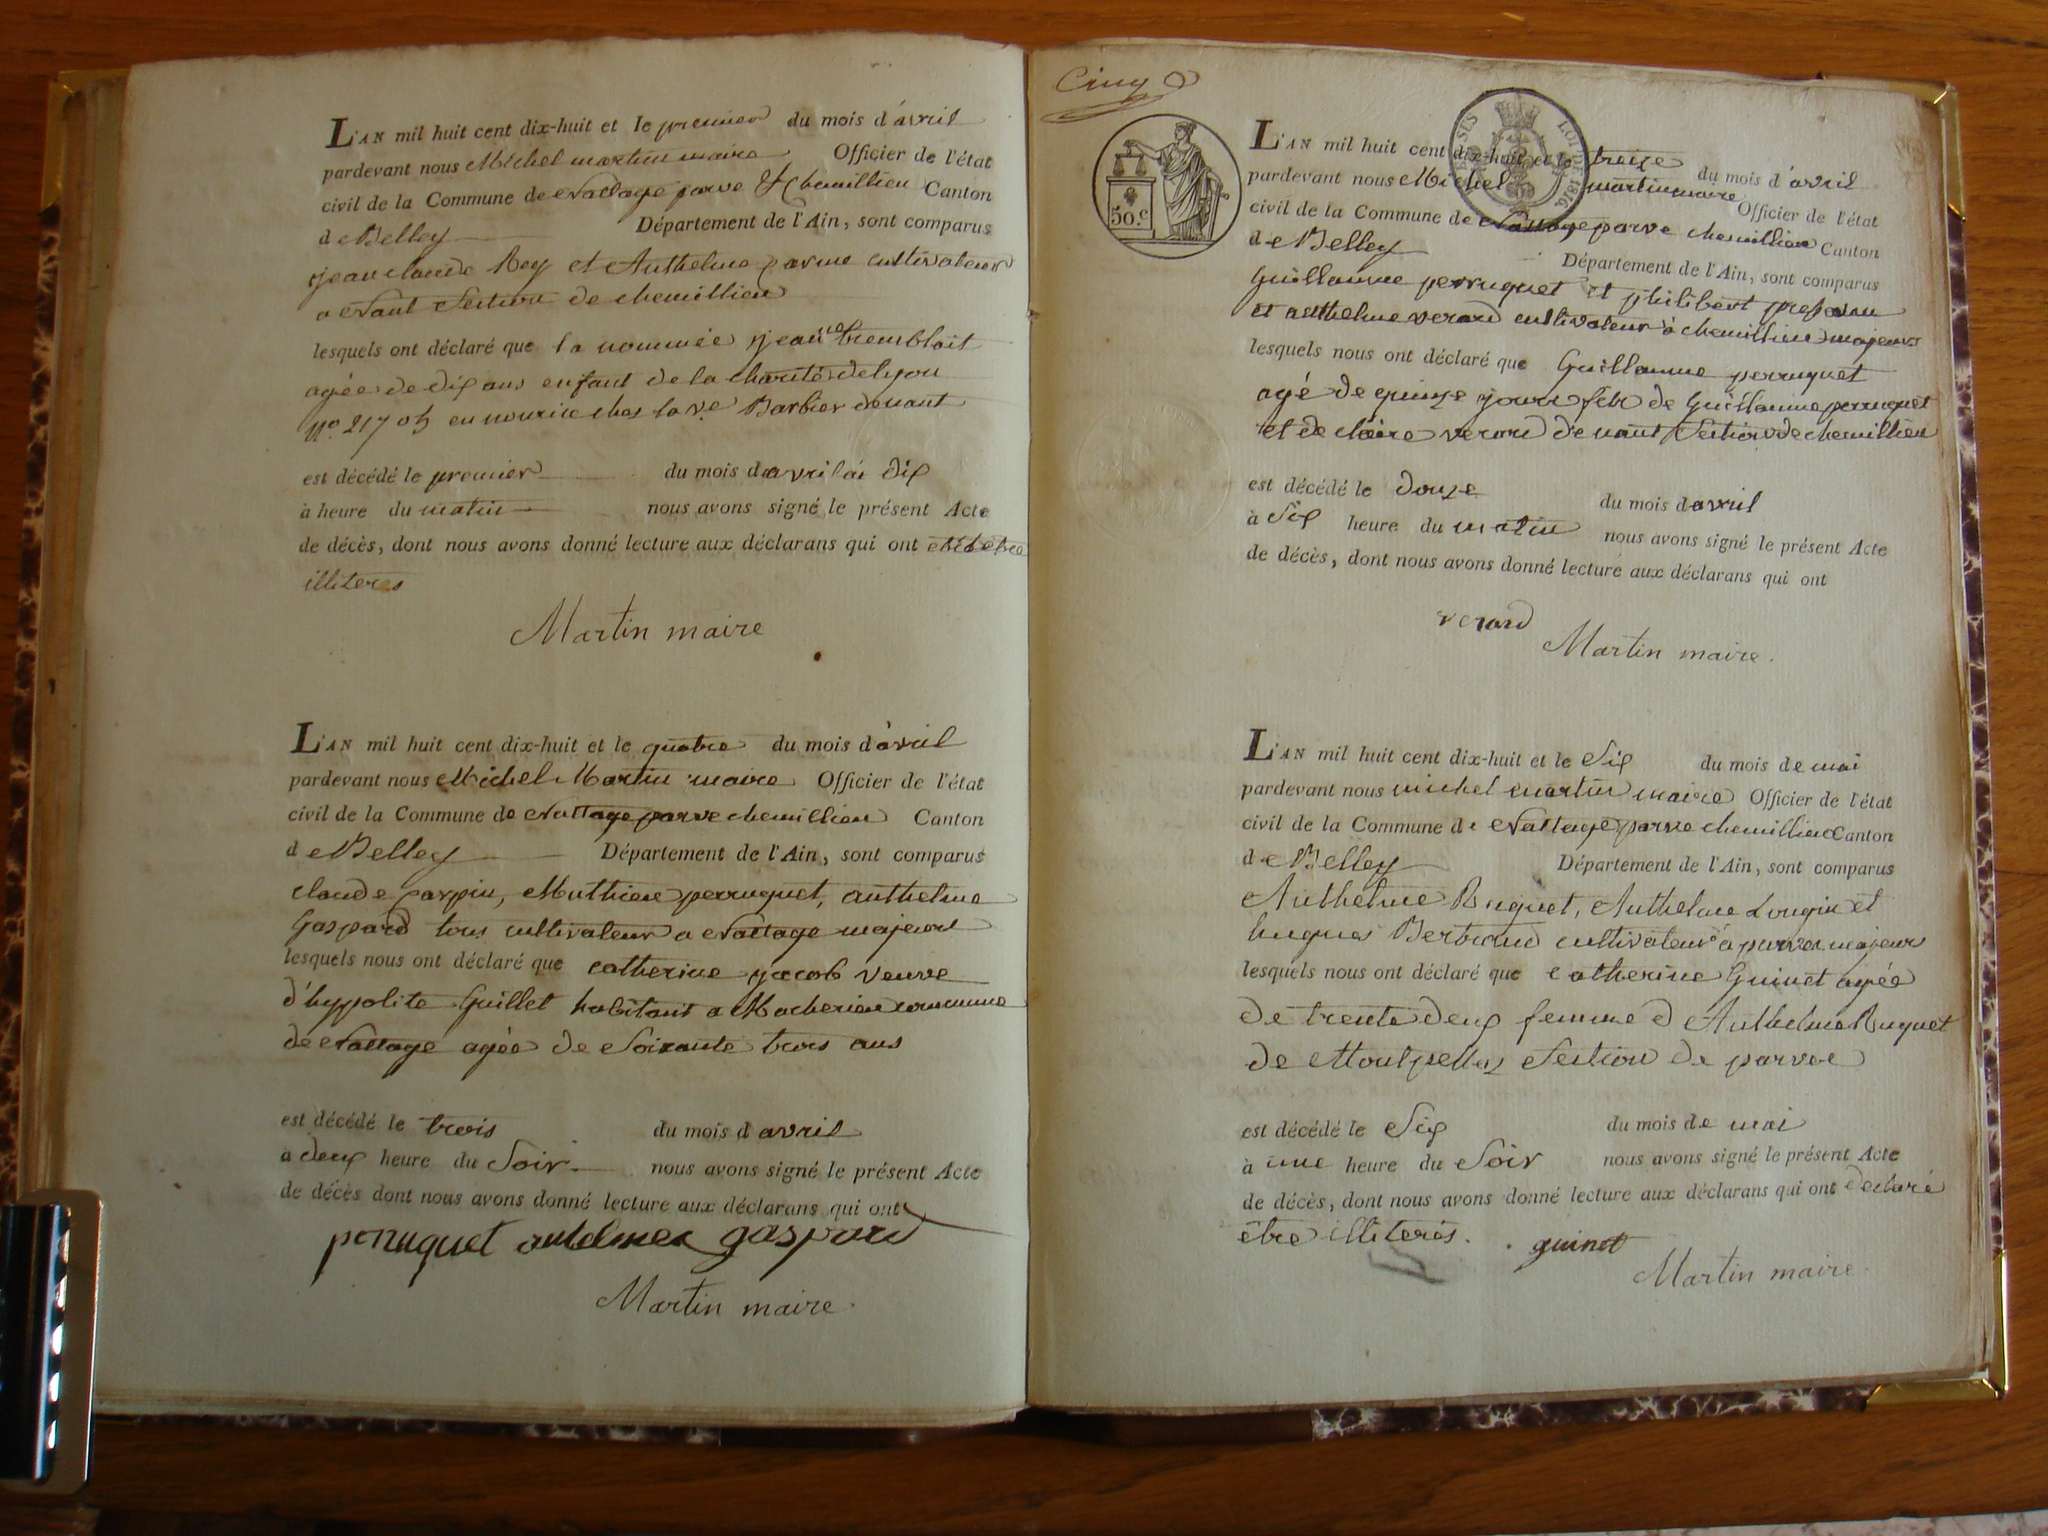 L'AN mil huit cent dix-huit et le premier du mois d'avril
pardevant nous Michel martin maire Officier de l'état
civil de la Commune de Nattage parve & chemillieu Canton
de Belley Département de l'Ain, sont comparus
jean claude Rey et Anthelme parme cultivateur
a Nant Section de chemillieu
lesquels ont déclaré que la nommée jean tremblait
agée de dix ans enfant de la charité de lyon
no. 21705 en nourice chez la ve Barbier de nant
est décédé le premier du mois d'avril à dix
à heure du matin nous avons signé le présent Acte
de décès, dont nous avons donné lecture aux déclarans qui ont
illiteres
Martin maire
L'AN mil huit cent dix-huit et le quatre du mois d'avril
pardevant nous Michel Martin maire Officier de l'état
civil de la Commune de Nattage parve chemillieu Canton
de Belley Département de l'Ain, sont comparus
claude parpin, Mathieu perruquet, anthelme
Gaspard tous cultivateur a Nattage majeurs
lesquels nous ont déclaré que catherine jacob veuve
d'hyppolite Guillet habitant a Nacherieu commune
de Nattage agée de Soixante trois ans
est décédé le trois du mois d avril
à deux heure du Soir nous avons signé le présent Acte
de décès dont nous avons donné lecture aux déclarans qui ont
perruquet antelmea gaspard
Martin maire.
Cinq
50.c
LOI DE 1816
L'AN mil huit cent dix-huit et le treize du mois d'avril
pardevant nous Michel martin maire Officier de l'état
civil de la Commune de Nattage parve chemillieu Canton
de Belley Département de l'Ain, sont comparus
Guillaume perruquet et philibert
et anthelme verard cultivateur à chemillieu majeurs
lesquels nous ont déclaré que Guillaume perruquet
agé de quinze jours fils de Guillaume perruquet
et de claire verard de nant Section de chemillieu
est décédé le douze du mois d avril
à Six heure du matin nous avons signé le présent Acte
de décès, dont nous avons donné lecture aux déclarans qui ont
verard
Martin maire.
L'AN mil huit cent dix-huit et le Six du mois de mai
pardevant nous michel martin maire Officier de l'état
civil de la Commune de Nattage parve chemillieu Canton
de Belley Département de l'Ain, sont comparus
Anthelme Ruquet, Anthelme Lougin et
hugues Bertrand cultivateur à parves majeurs
lesquels nous ont déclaré que catherine Guinet agée
de trente deux femme d Anthelme Ruquet
de Montpellas Section de parve
est décédé le Six du mois de mai
à une heure du Soir nous avons signé le présent Acte
de décès, dont nous avons donné lecture aux déclarans qui ont déclaré
être illiterés.
guinet
Martin maire.